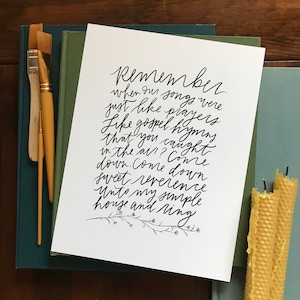 Remember
when our songs were
just like prayers
Like gospel hymns
that you caught
in the air? Come
down Come down
sweet reverence
unto my simple
house and ring